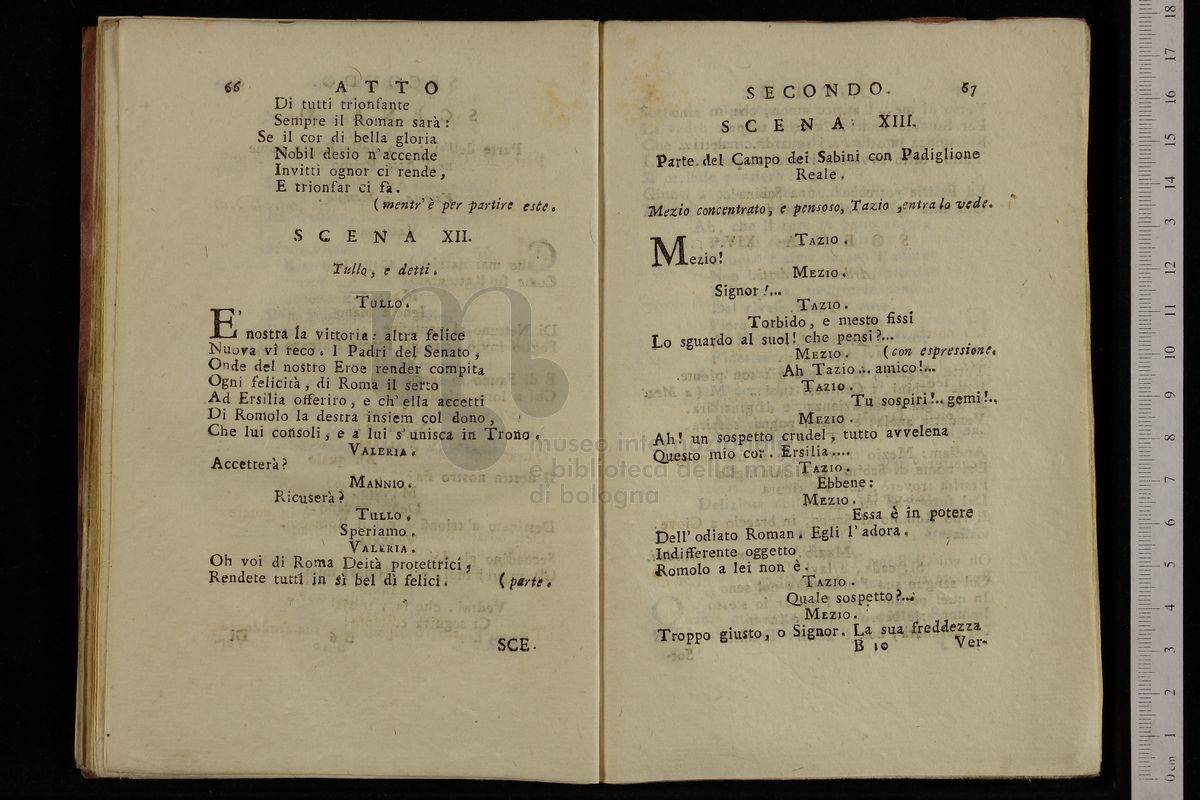 66 ATTO
Di tutti trionfante
Sempre il Roman sarà:
Se il cor di bella gloria
Nobil desio n'accende
Invitti ognor ci rende,
E trionfar ci fà.
(mentr'è per partire esce.
SCENA XII.
Tullo, e detti.
TULLO.
E' nostra la vittoria: altra felice
Nuova vi reco. I Padri del Senato,
Onde del nostro Eroe render compita
Ogni felicità, di Roma il serto
Ad Ersilia offeriro, e ch'ella accetti
Di Romolo la destra insiem col dono,
Che lui consoli, e a lui s'unisca in Trono.
VALERIA.
Accetterà?
MANNIO.
Ricuserà?
TULLO.
Speriamo.
VALERIA.
Oh voi di Roma Deità protettrici,
Rendete tutti in sì bel dì felici. (parte.
SCE-
SECONDO. 67
SCENA XIII.
Parte del Campo dei Sabini con Padiglione
Reale.
Mezio concentrato, e pensoso, Tazio ,entra lo vede.
TAZIO.
Mezio!
MEZIO.
Signor!...
TAZIO.
Torbido, e mesto fissi
Lo sguardo al suol! che pensi?...
MEZIO. (con espressione.
Ah Tazio... amico!...
TAZIO.
Tu sospiri!.. gemi!..
MEZIO.
Ah! un sospetto crudel, tutto avvelena
Questo mio cor. Ersilia....
TAZIO.
Ebbene:
MEZIO.
Essa è in potere
Dell' odiato Roman. Egli l'adora.
Indifferente oggetto
Romolo a lei non è.
TAZIO.
Quale sospetto?...
MEZIO.
Troppo giusto, o Signor. La sua freddezza
B 10 Ver-
museo
e biblioteca della musica
di bologna